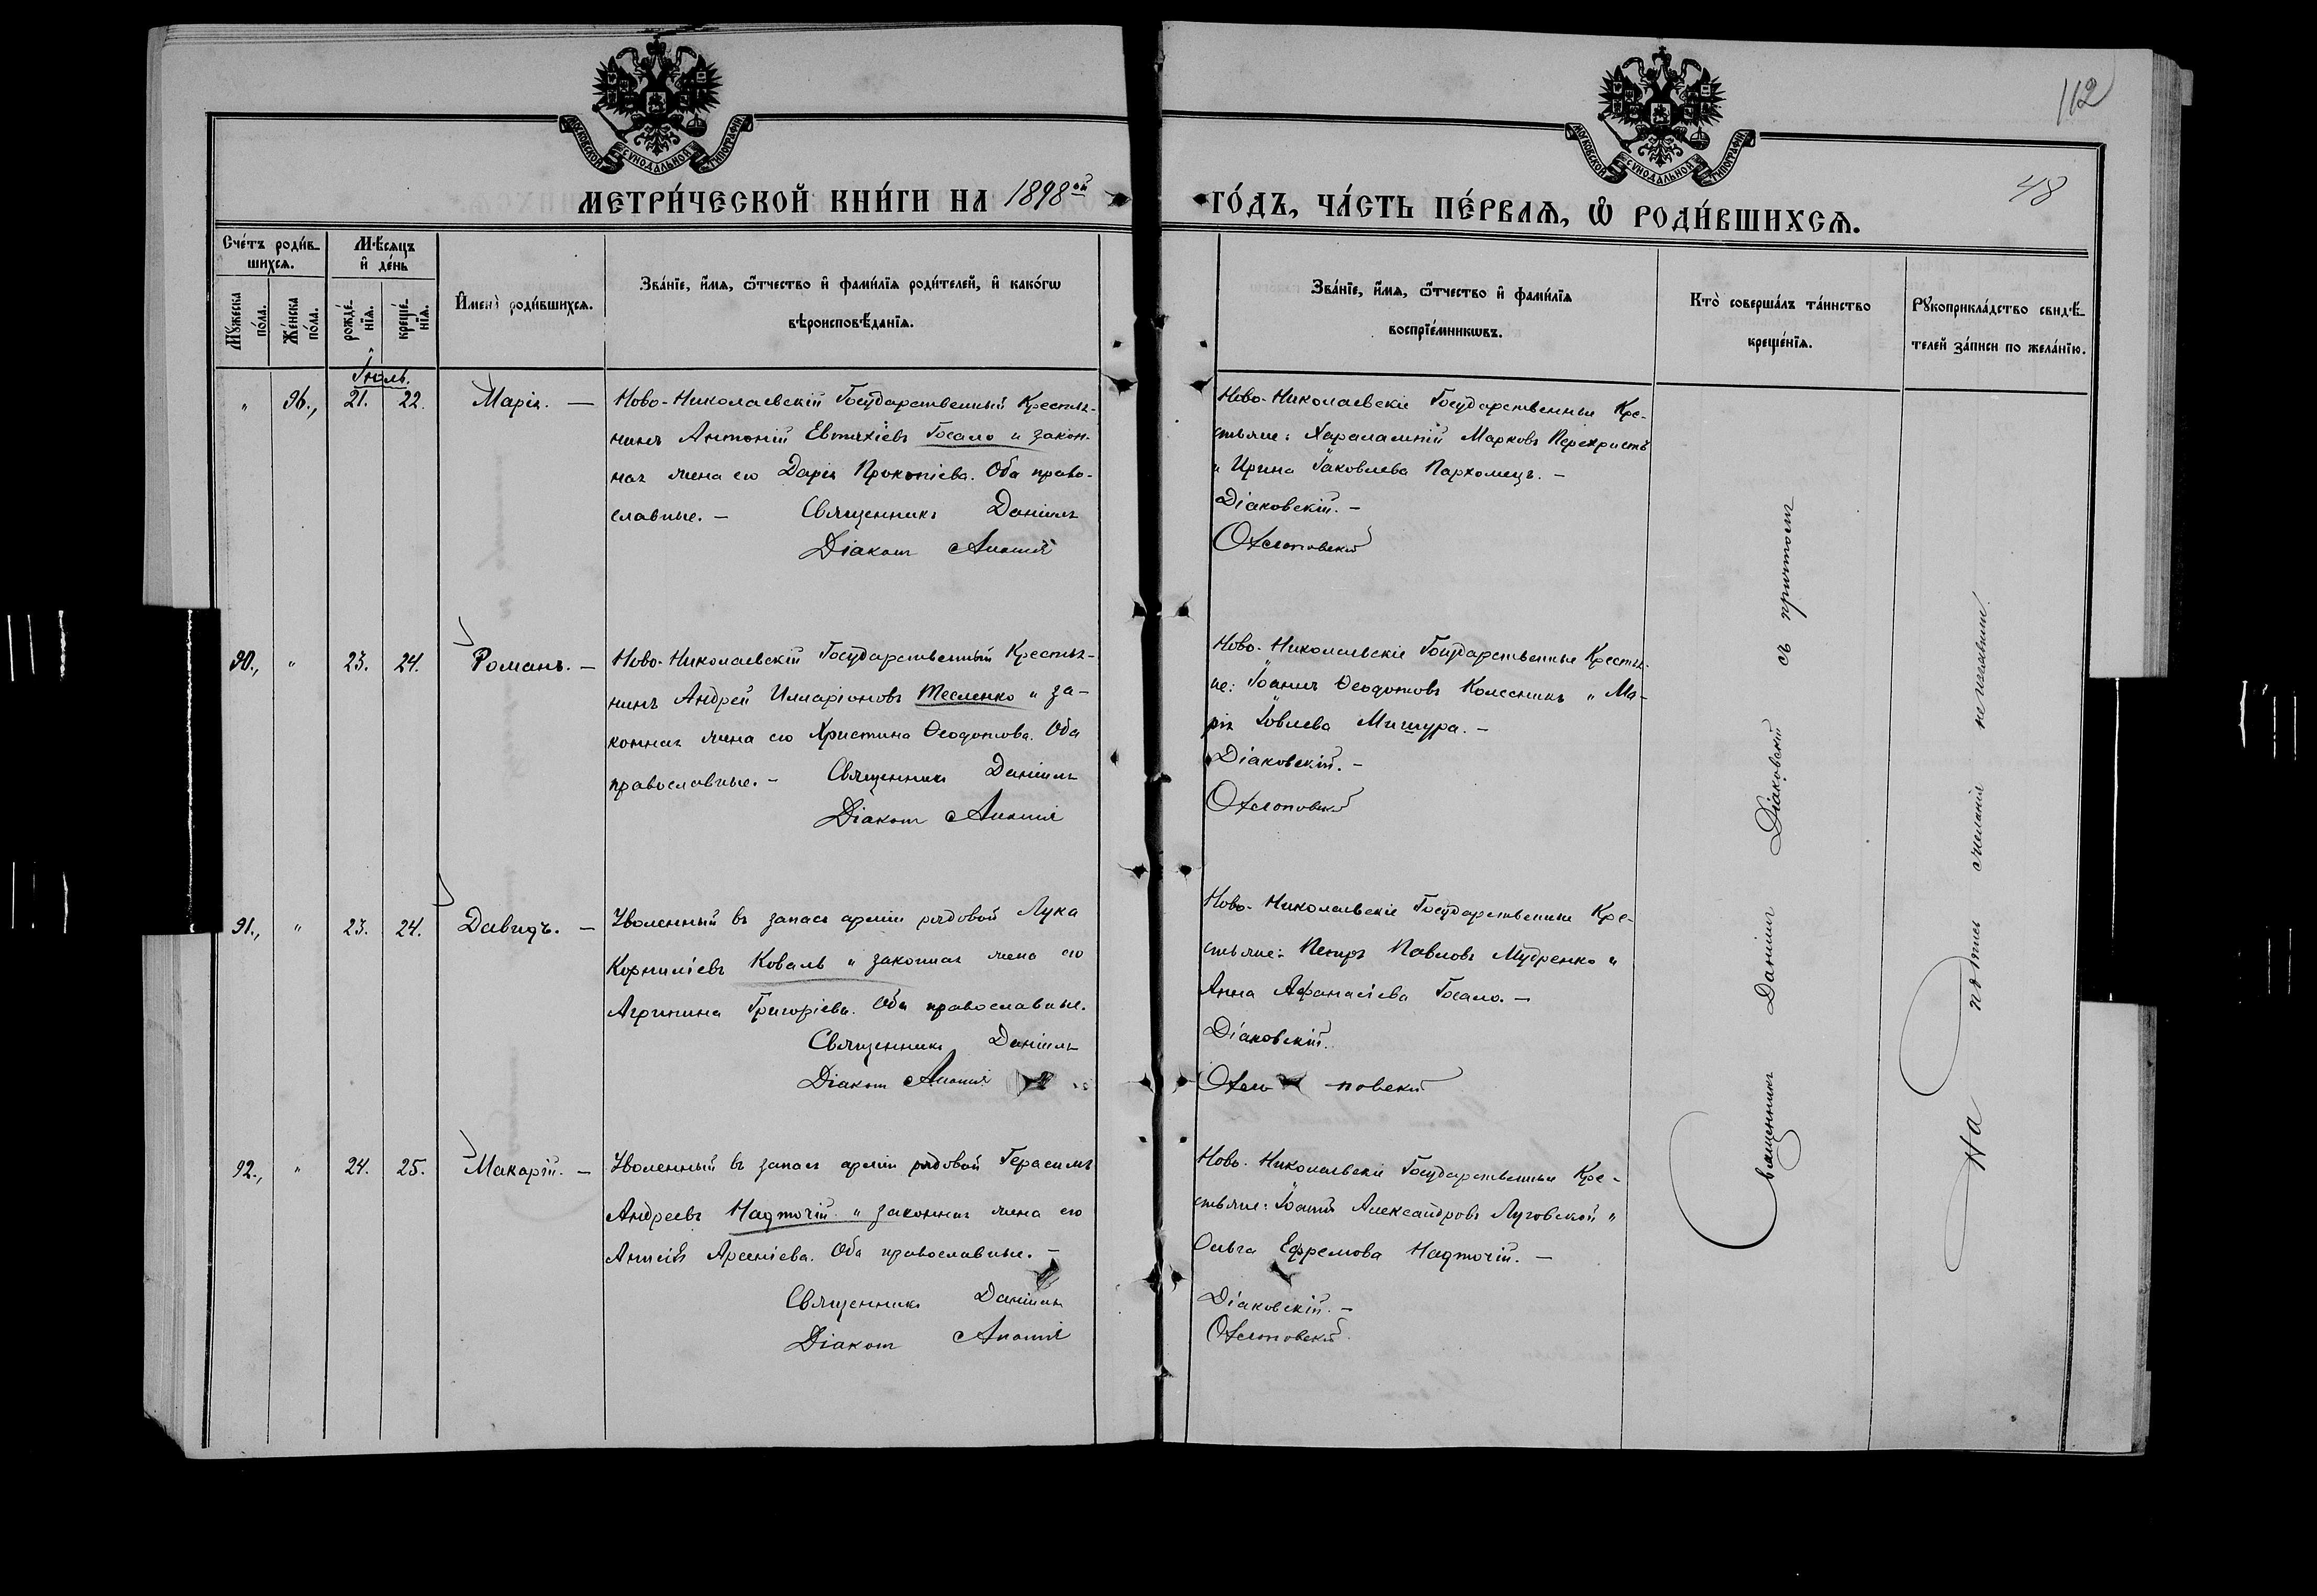 112
48
МОСКОВСКОЙ СѴНОДАЛЬНОЙ ТИПОГРАФІИ
МОСКОВСКОЙ СѴНОДАЛЬНОЙ ТИПОГРАФІИ
МЕТРИ́ЧЕСКОЙ КНИ́ГИ НА 1898ой
ГО́ДЪ, ЧА́СТЬ ПЕ́РВАѦ, Ѿ РОДИ́ВШИХСѦ.
Сче́тъ роди́в-
шихсѧ.
Мꙋ́жеска
по́ла.
Же́нска
по́ла.
Мѣ́сяцъ
и҆ де́нь
рожде́-
нїѧ.
креще́-
нїѧ.
И҆мена̀ роди́вшихсѧ.
Зва́нїе, и҆́мѧ, ѻ҆́тчество и҆ фами́лїѧ роди́телей, и҆ како́гѡ
вѣроисповѣ́данїѧ.
Зва́нїе, и҆́мѧ, ѻ҆́тчество и҆ фами́лїѧ
воспрїе́мникѡвъ.
Кто̀ соверша́лъ та́инство
креще́нїѧ.
Рꙋкоприкла́дство свидѣ́-
телей за́писи по жела́нїю.
Іюль.
" 96., 21. 22. Марія. —
Ново-Николаевскій Государственный Крестья-
нинъ Антоній Евтихіевъ Госало и закон-
ная жена его Дарія Прокопіева. Оба право-
славные. — Священникъ Даніилъ
Діаконъ
Ново-Николаевскіе Государственные Кре-
стьяне: Харалампій Марковъ Перехристъ
и Ирина Іаковлева Пархомецъ. —
Діаковскій. —
90., " 23. 24. Романъ. —
Ново-Николаевскій Государственный Крестья-
нинъ Андрей Илларіоновъ Тесленко и за-
конная жена его Христина Ѳеодотова. Оба
православные. — Священникъ Даніилъ
Діаконъ
Ново-Николаевскіе Государственные Крестья-
не: Іоаннъ Ѳеодотовъ Колесникъ и Ма-
рія Іовлева Мишура. —
Діаковскій. —
91., " 23. 24. Давидъ. —
Уволенный въ запасъ арміи рядовой Лука
Корниліевъ Коваль и законная жена его
Агрипина Григоріева. Оба православные.
Священникъ Даніилъ
Діаконъ
Ново-Николаевскіе Государственные Кре-
стьяне: Петръ Павловъ Мудренко и
Анна Афанасіева Госало. —
Діаковскій.
92., " 24. 25. Макарій. —
Уволенный въ запасъ арміи рядовой Герасимъ
Андреевъ Надточій и законная жена его
Анисія Арсеніева. Оба православные. —
Священникъ Даніилъ
Діаконъ
Ново-Николаевскіе Государственные Кре-
стьяне: Іоаннъ Александровъ Луговской и
Ольга Ефремова Надточій. —
Діаковскій. —
Священникъ Даніилъ Діаковскій съ причтомъ
На подпись желанія не изъявили.